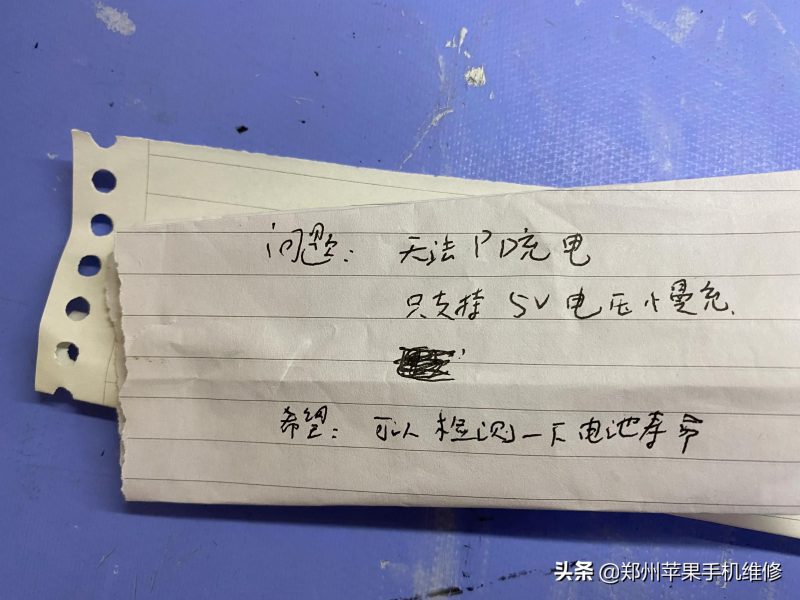 问题：无法PD充电
只支持5V电压慢充.
希望：可以检测一下电池寿命
头条 @郑州苹果手机维修